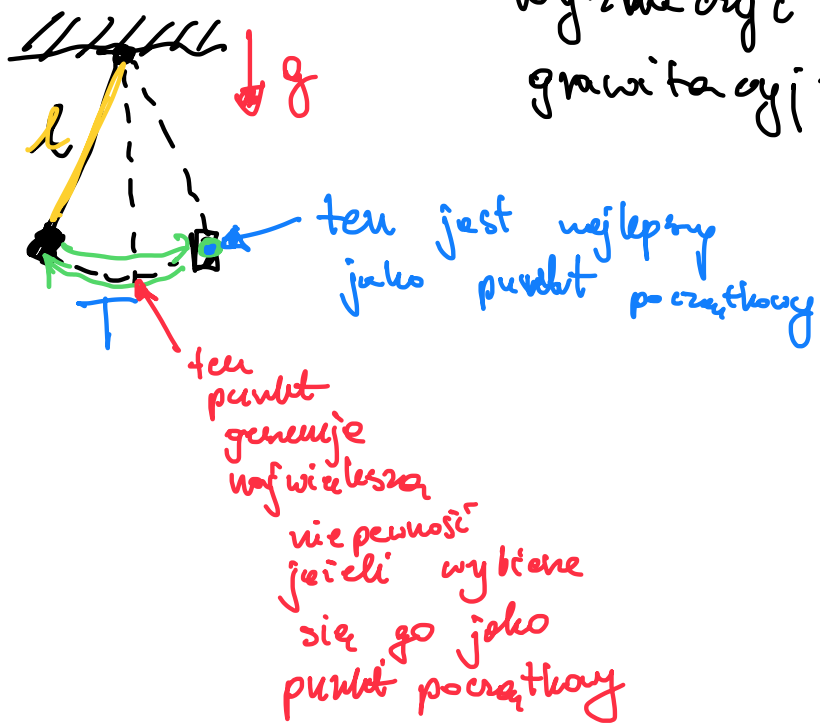 wyznaczyć
grawitacyj
g
l
ten jest najlepszy
jako punkt początkowy
T
ten
punkt
generuje
największą
niepewność
jeżeli wybierze
się go jako
punkt początkowy